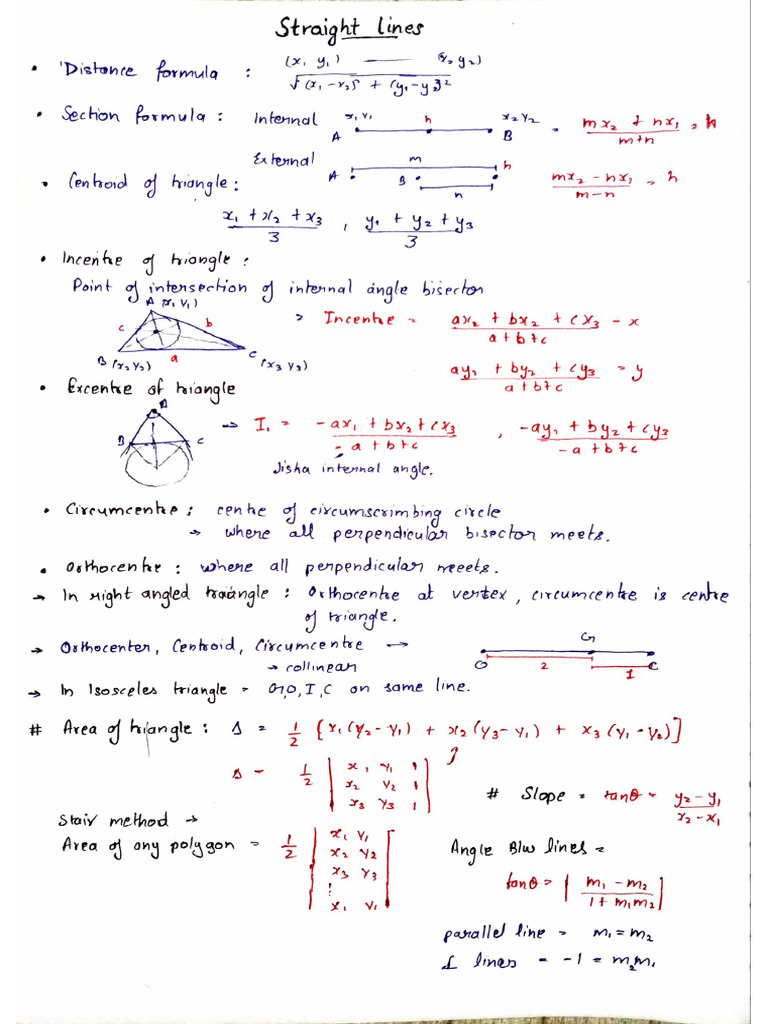 Straight lines
• Distance formula : (x₁ y₁) —— (x₂ y₂)
√(x₁ - x₂)² + (y₁ - y₂)²
• Section formula : Internal x₁ y₁ A h x₂ y₂ B = mx₂ + nx₁ / m+n = h
External A m B n h mx₂ - nx₁ / m-n = h
• Centroid of triangle :
x₁ + x₂ + x₃ / 3 , y₁ + y₂ + y₃ / 3
• Incentre of triangle :
Point of intersection of internal angle bisector
A (x₁ y₁) c b B (x₂ y₂) a C (x₃ y₃)
> Incentre = ax₂ + bx₂ + cx₃ / a+b+c - x
ay₁ + by₂ + cy₃ / a+b+c = y
• Excentre of triangle
A B C
→ I₁ = -ax₁ + bx₂ + cx₃ / -a+b+c , -ay₁ + by₂ + cy₃ / -a+b+c
Jisha internal angle.
• Circumcentre : centre of circumscrimbing circle
→ where all perpendicular bisector meets.
• Orthocentre : where all perpendicular meeets.
→ In right angled traiangle : Orthocentre at vertex, circumcentre is centre
of triangle.
→ Orthocenter, Centroid, Circumcentre → O 2 G 1 C
→ collinear
→ In Isosceles triangle = G,O,I,C on same line.
# Area of triangle : Δ = 1/2 [x₁(y₂ - y₁) + x₂(y₃ - y₁) + x₃(y₁ - y₂)]
Δ = 1/2 | x₁ y₁ 1
x₂ y₂ 1
x₃ y₃ 1 |
# Slope = tanθ = y₂ - y₁ / x₂ - x₁
Stair method →
Area of any polygon = 1/2 | x₁ y₁
x₂ y₂
x₃ y₃
⋮
x₁ y₁ |
Angle B/w lines =
tanθ = | m₁ - m₂ / 1 + m₁m₂ |
parallel line = m₁ = m₂
⊥ lines = -1 = m₂m₁